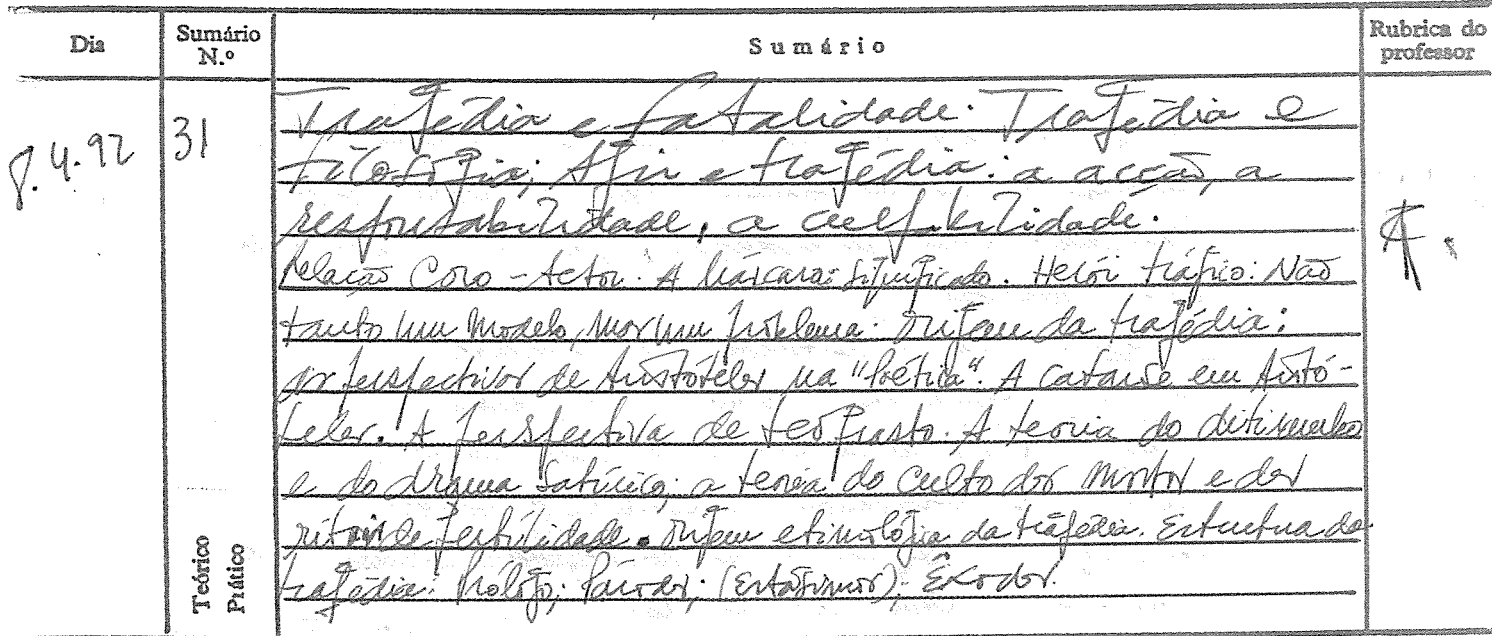 Dia Sumário N.º Sumário Rubrica do professor
8.4.92 31 Tragédia e fatalidade. Tragédia e
filosofia; Agir e tragédia: a acção, a
responsabilidade, a culpabilidade.
Relação Coro - Actor. A Máscara: significado. Herói trágico: Não
tanto um modelo, mas um problema. Origem da tragédia:
as perspectivas de Aristóteles na "Poética". A catarse em Aristó-
teles. A perspectiva de Teofrasto. A teoria do ditirambo
e do drama satírico; a teoria do culto dos mortos e dos
ritos de fertilidade. Origem etimológica da tragédia. Estrutura da
tragédia: Prólogo; Párodos; (Estásimos); Êxodos.
Teórico
Prático